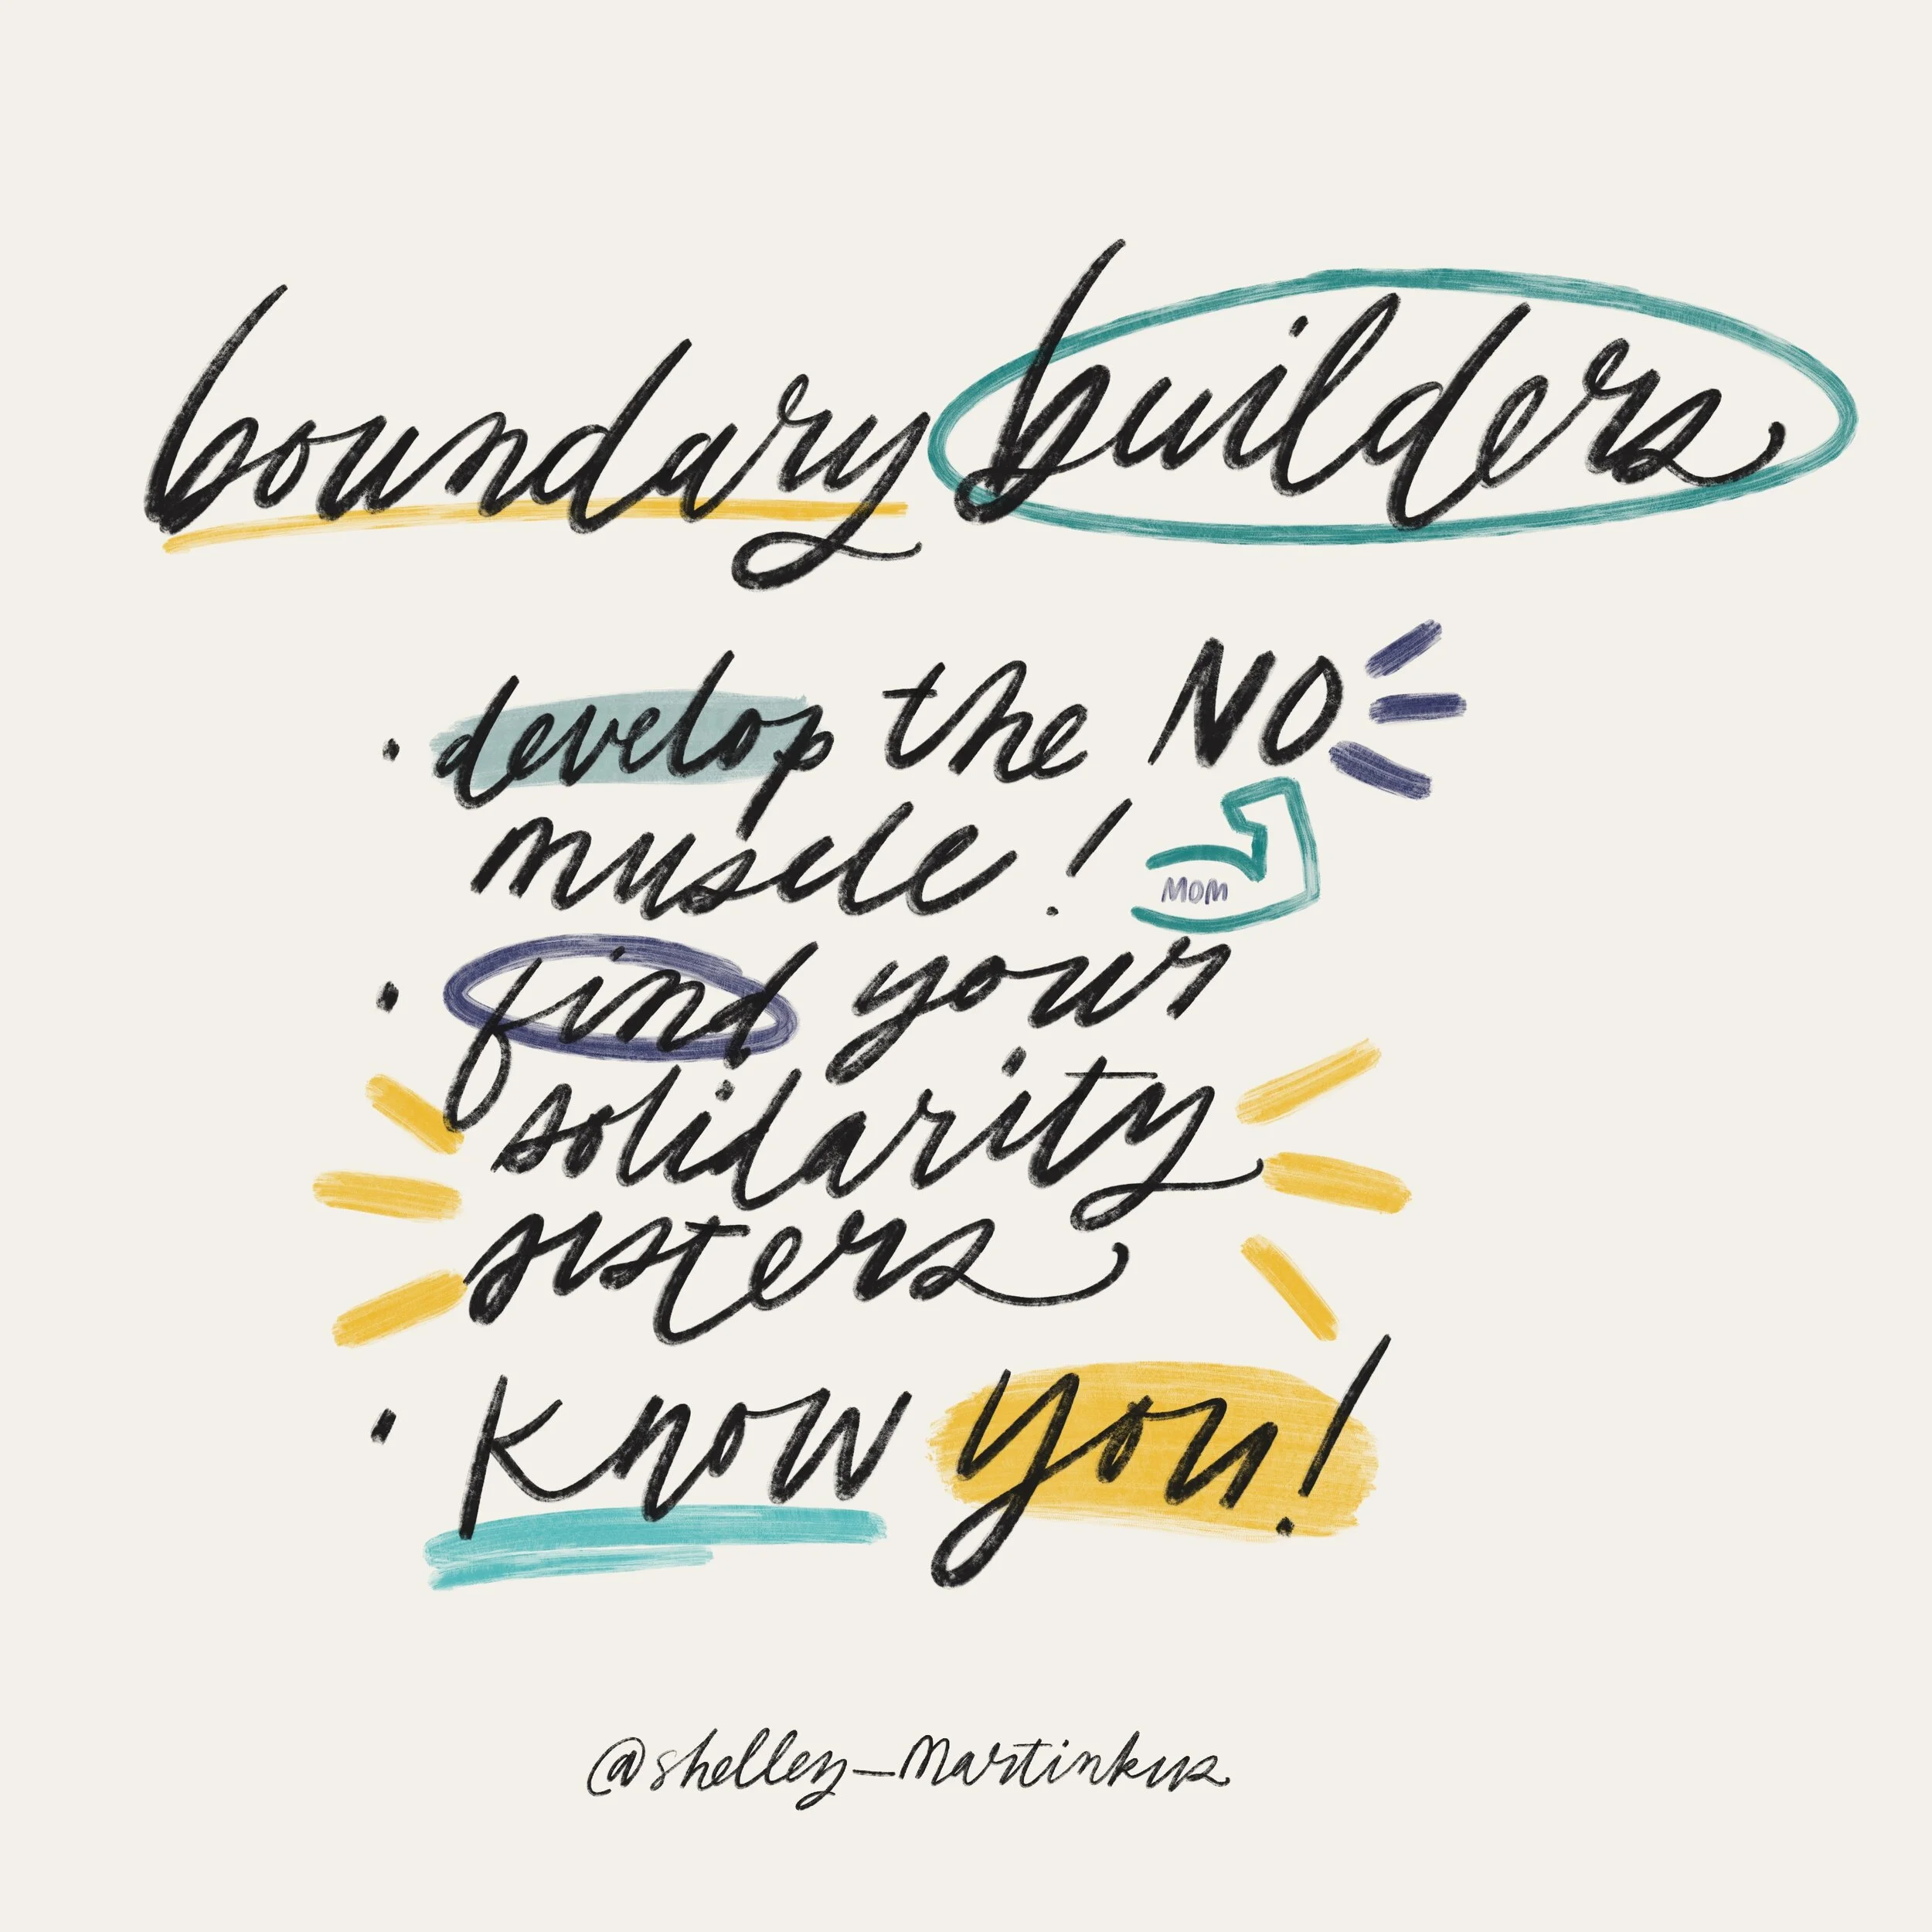 boundary builders
• develop the NO
muscle!
MOM
• find your
solidarity
sisters
• Know you!
@shelley_Martinkus